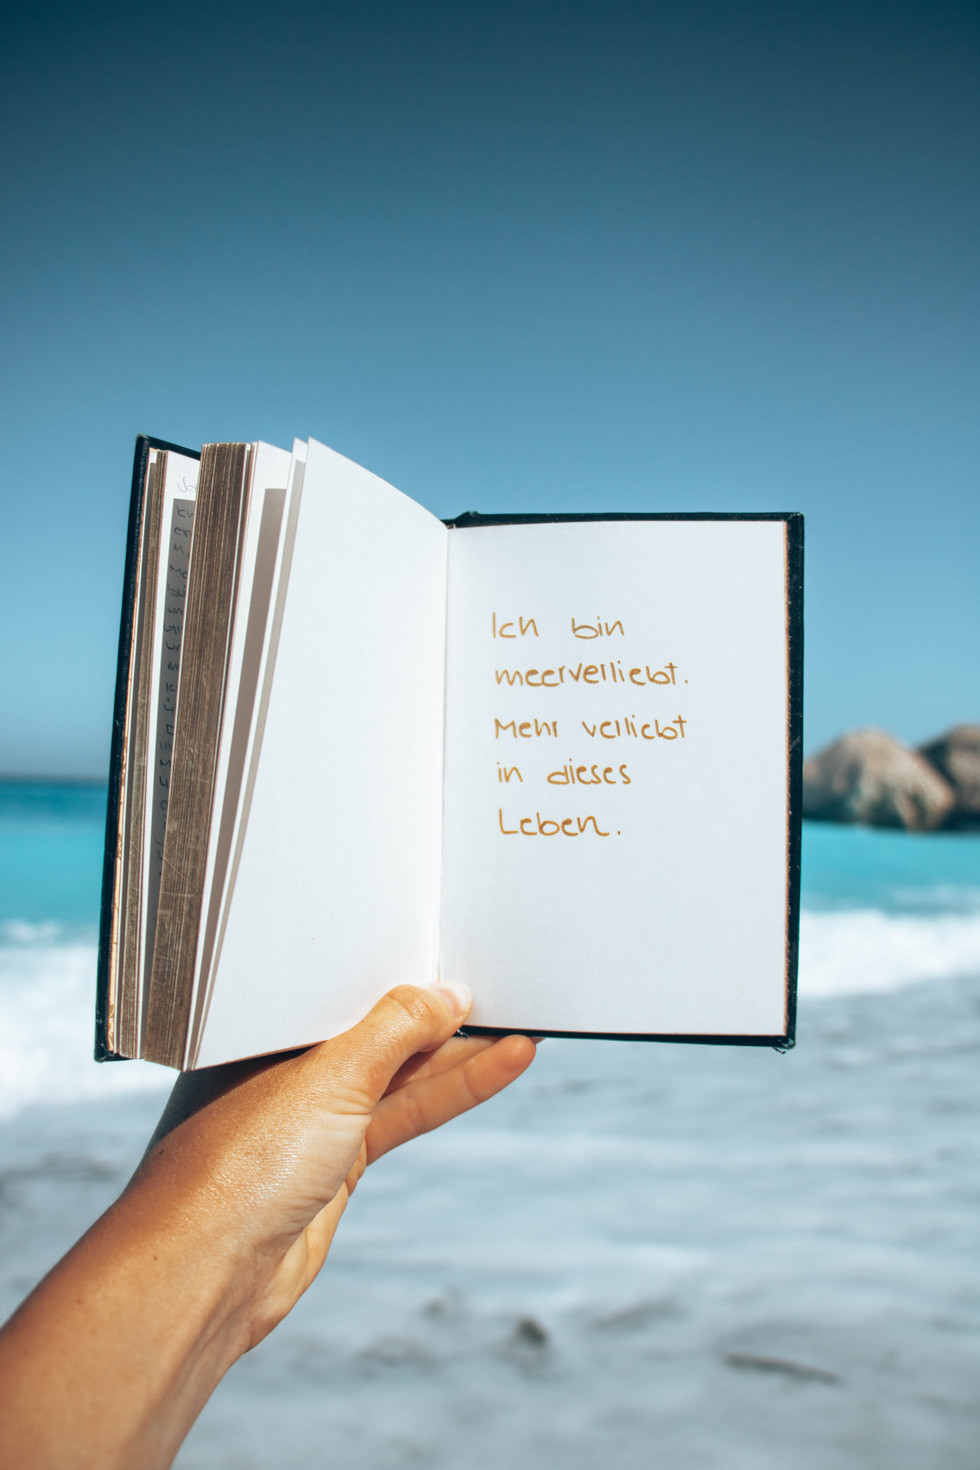 Ich bin
meerverliebt.
Mehr verliebt
in dieses
Leben.